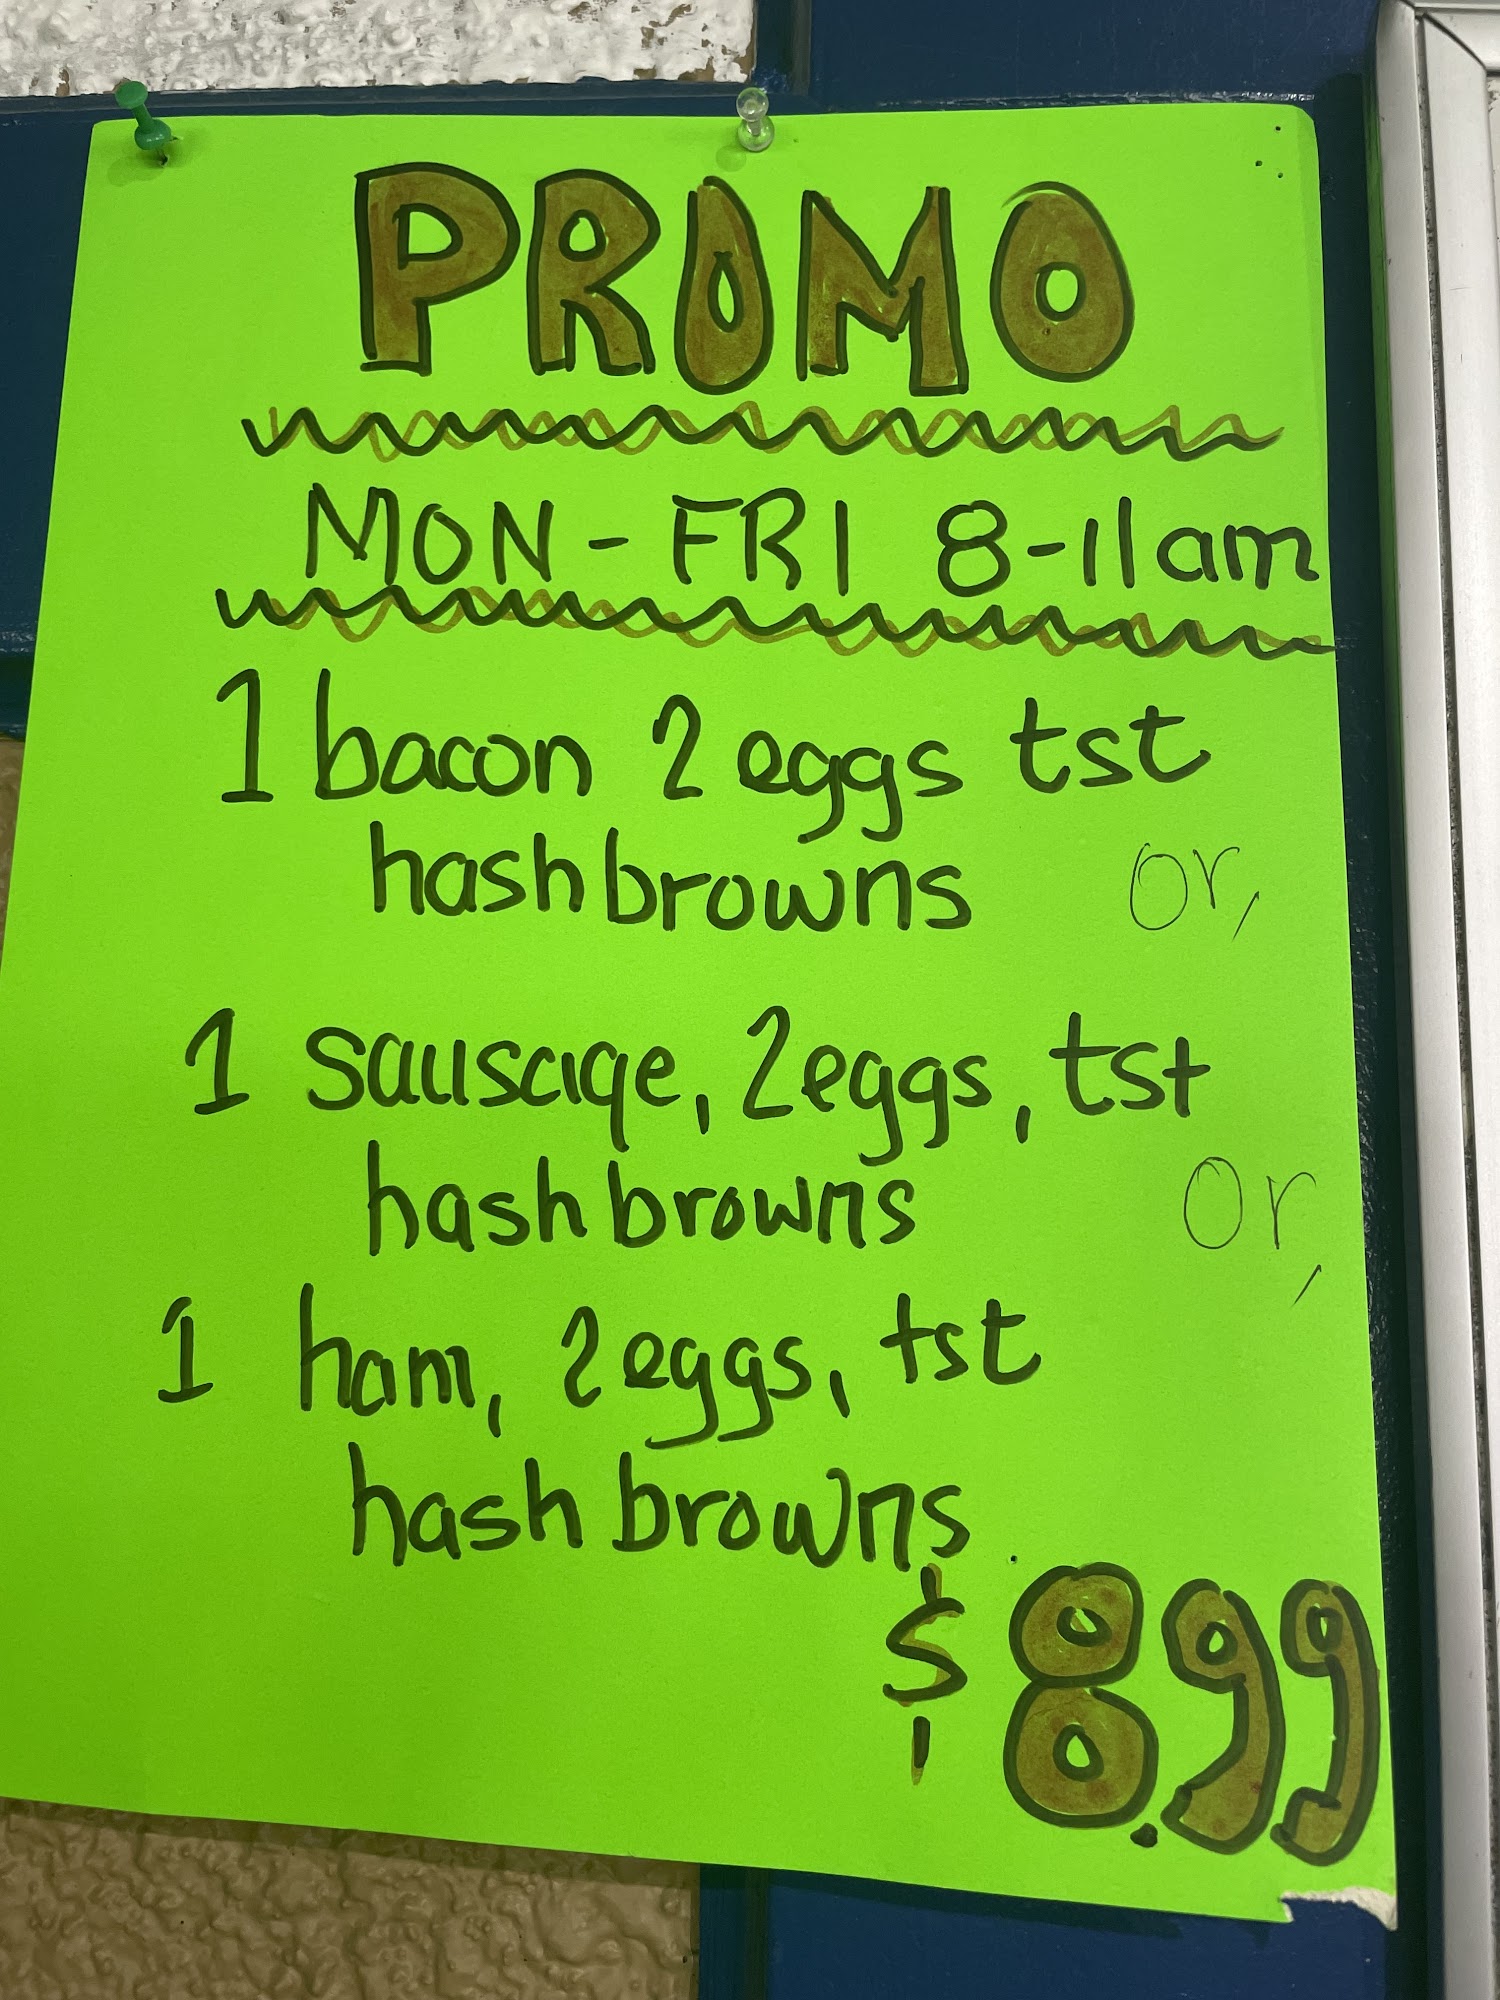 PROMO
MON-FRI 8-11am
1 bacon 2 eggs tst
hashbrowns or,
1 sausage, 2 eggs, tst
hashbrowns or,
1 ham, 2 eggs, tst
hash browns
$8.99